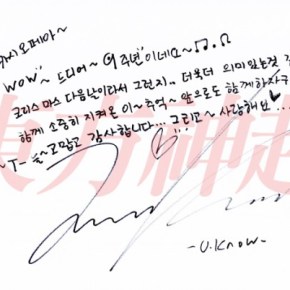 카시오페아~
wow~ 드디어~ 9주년이네요~♫.Ω
크리스마스 다음날이라서 그런지.. 더욱더 의미있는것 
함께 소중히 지켜온 이~추억~ 앞으로도 함께하자구
~T- 늘~고맙고 감사합니다... 그리고~ 사랑해요♡...
東方神起
-U.Know-